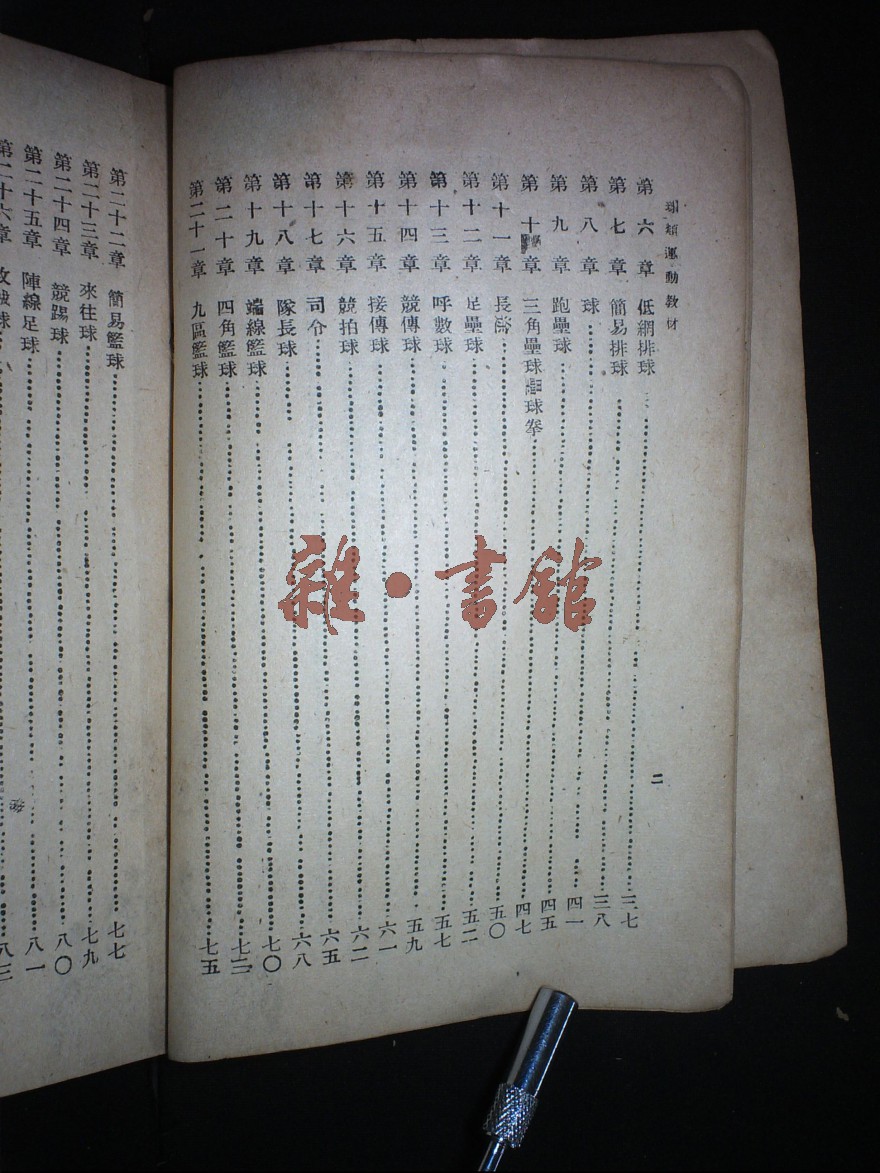 球類運動教材
二
第六章 低網排球 三七
第七章 簡易排球 三八
第八章 球 四一
第九章 跑壘球 四五
第十章 三角壘球 球拳 四七
第十一章 長 五〇
第十二章 足壘球 五二
第十三章 呼數球 五七
第十四章 競傳球 五九
第十五章 接傳球 六一
第十六章 競拍球 六二
第十七章 司令 六五
第十八章 隊長球 六八
第十九章 端線籃球 七〇
第二十章 四角籃球 七三
第二十一章 九區籃球 七五
第二十二章 簡易籃球 七七
第二十三章 來往球 七九
第二十四章 競踢球 八〇
第二十五章 陣線足球 八一
第二十六章 球 八三
雜·書館